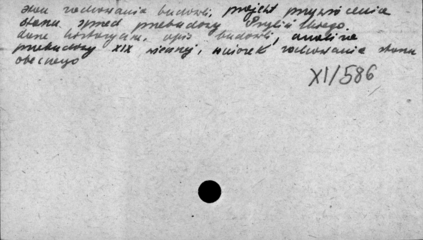 stan zachowania budowli, projekt przywrócenia
stanu sprzed przebudowy
dane historyczn. opis budowli, analiza
przebudowy XIX wiecznej, wniosek zachowania stanu
obecnego
XI/586